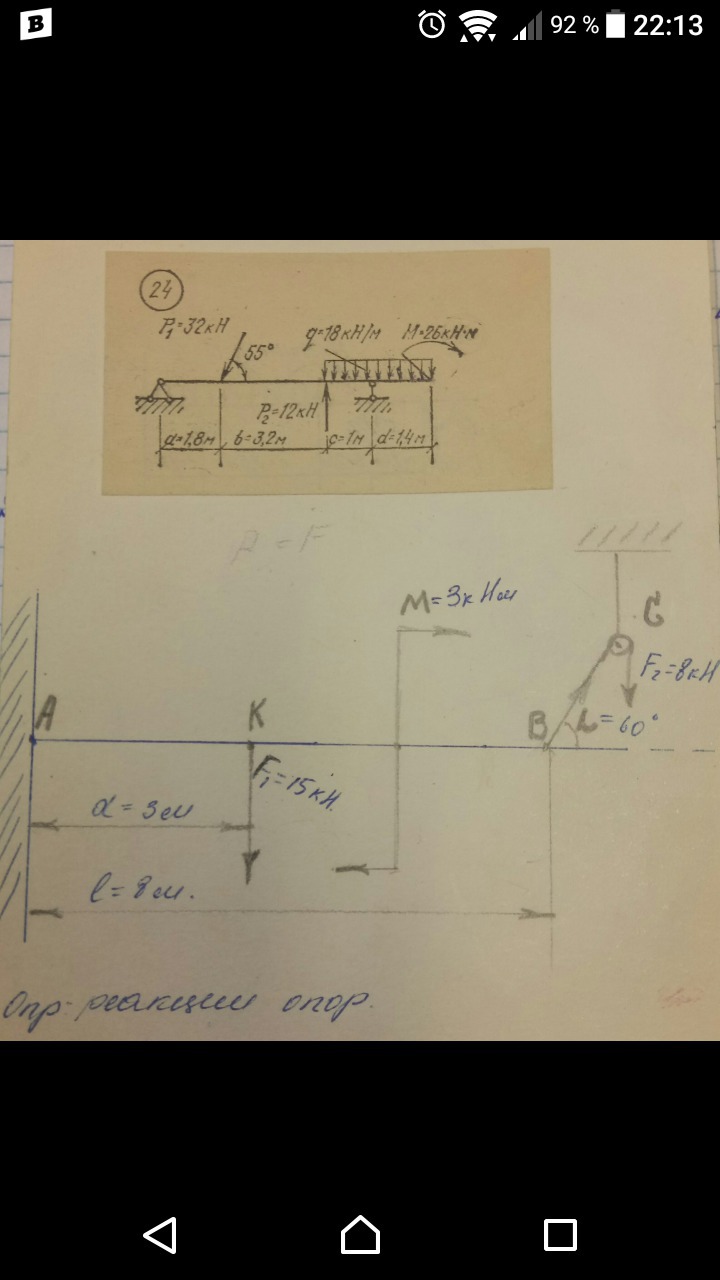 B 92 % 22:13
24
P₁=32кН
55°
q=18кН/м M=26кН·м
P₂=12кН
a=1,8м b=3,2м c=1м d=1,4м
P = F
M=3кНм
C
F₂=8кН
A K B L=60°
F₁=15кН
a=3м
l=8м.
Опр: реакции опор.